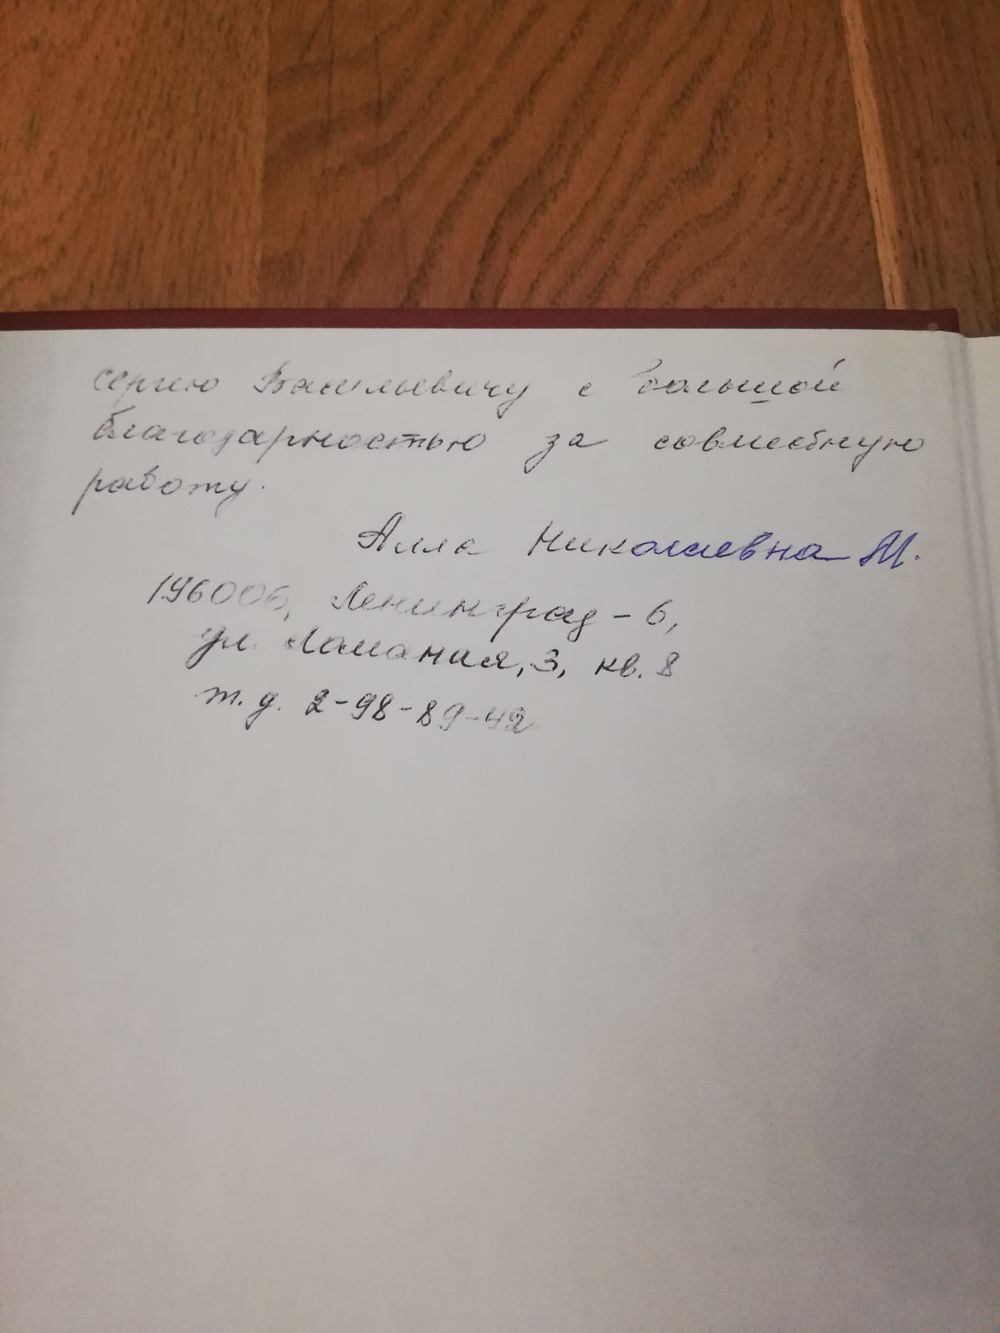 Сергею Васильевичу с большой
благодарностью за совместную
работу.
Алла Николаевна М.
196006, Ленинград-6,
ул. 3, кв. 8
т. д. 2-98-89-42